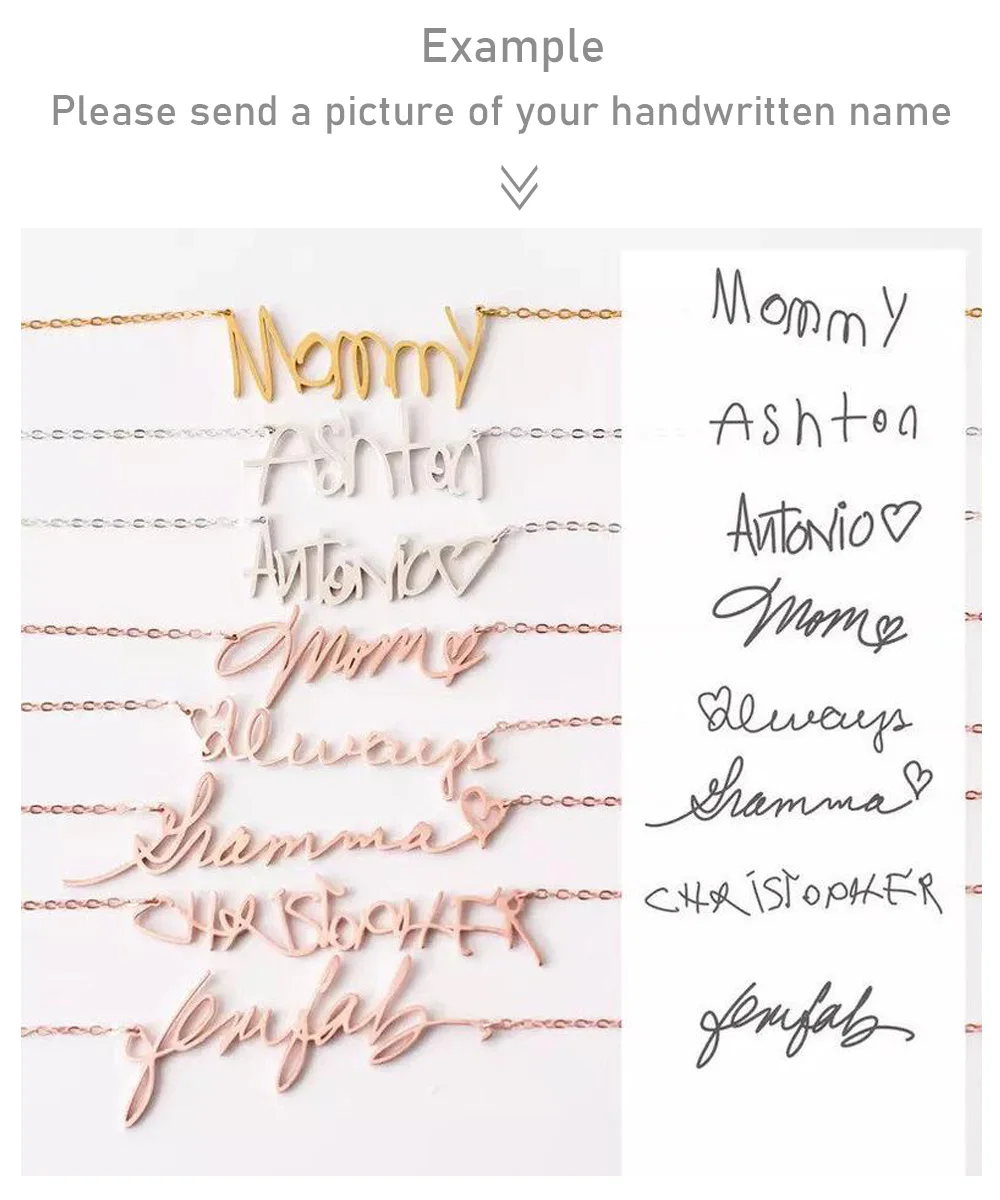 Example
Please send a picture of your handwritten name
Mommy Mommy
Ashton Ashton
Antonio♡ Antonio♡
Mom♡ Mom♡
♡always ♡always
Gramma♡ Gramma♡
CHRISTOPHER CHRISTOPHER